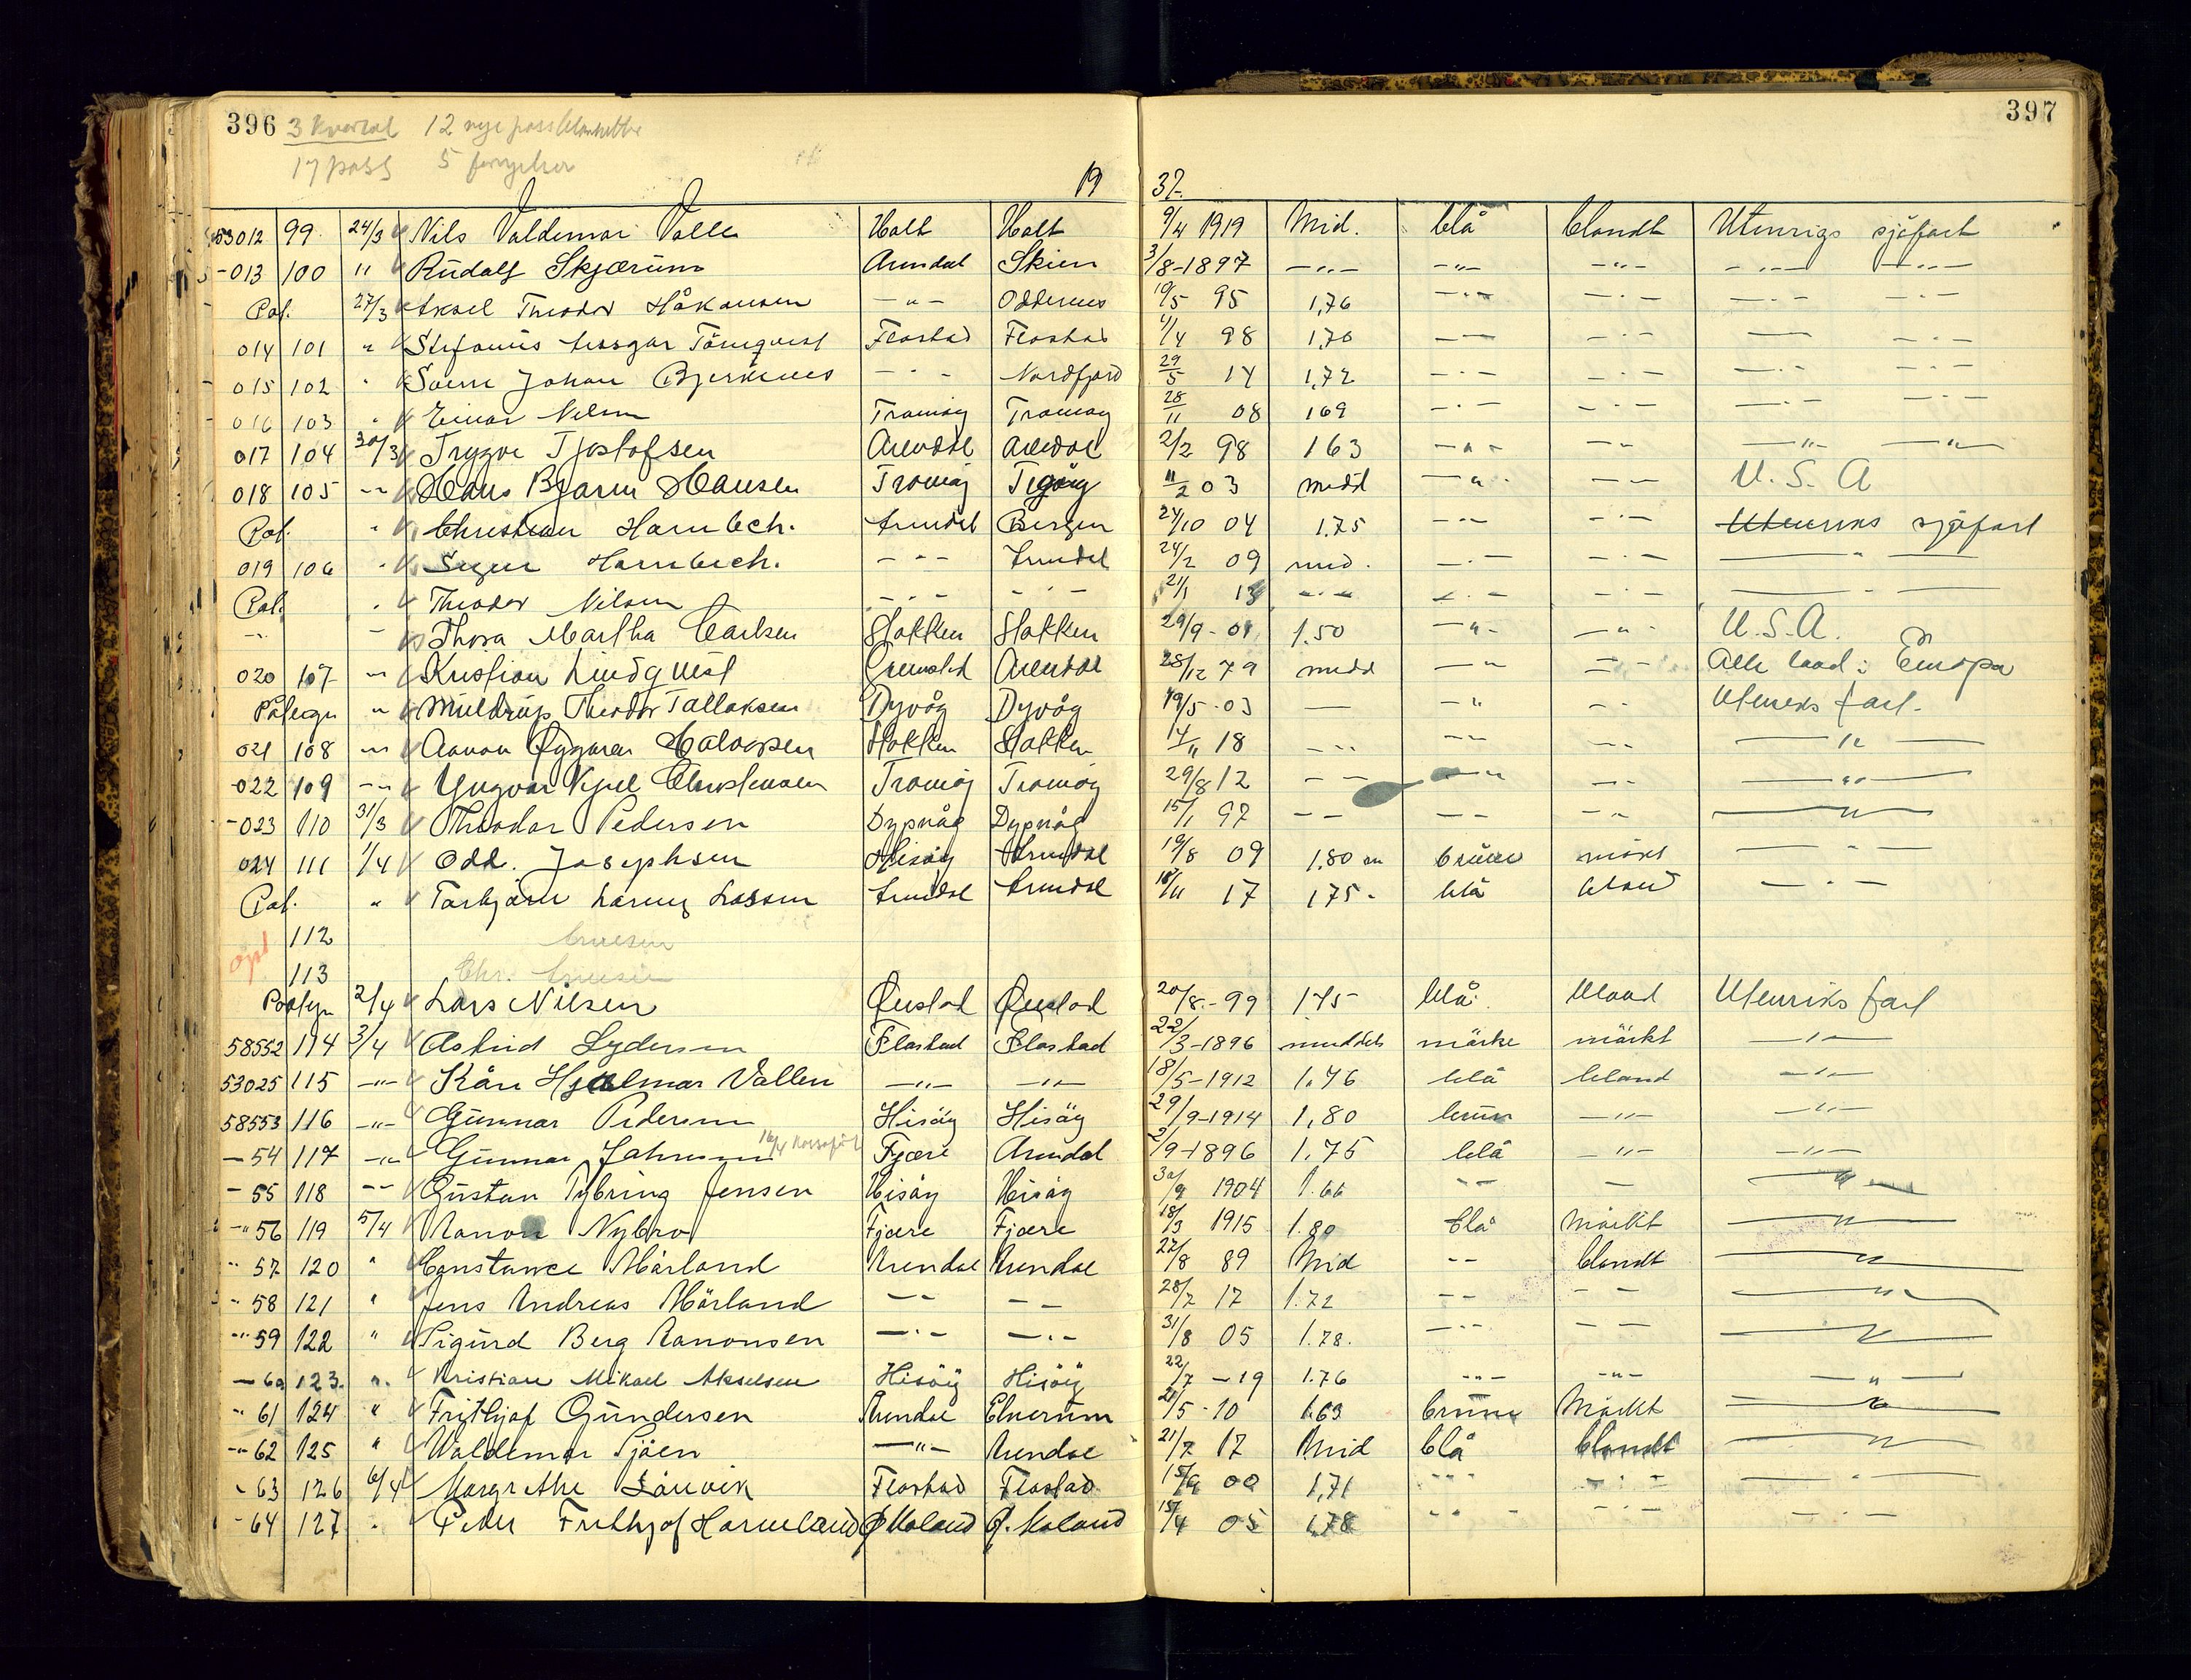 396 3 kvartal 12 nye passblanketter 397
17 pass 5 fornyelser
19 37.
53012 99 24/3 Nils Valdemar Valle Holt Holt 9/4 1919 Mid. blå blondt Utenrigs sjöfart
-013 100 " Rudolf Skjærum Arendal Skien 3/8-1897 -"- -"- -"- -"- -"-
Paf. 27/3 Aksel Theodor Håkansen -"- Oddernes 19/5 95 1,76 -"- -"- -"- -"-
014 101 " Stefanus Ansgar Törnqvist Flostad Flostad 4/4 98 1,70 -"- -"- -"- -"-
015 102 " Sverre Johan Bjerknes -"- Nordfjord 29/5 14 1,72 -"- -"- -"- -"-
016 103 " Einar Nilsen Tromöy Tromöy 28/11 08 169 -"- -"- -"- -"-
017 104 30/3 Trygve Tjostofsen Arendal Arendal 2/2 98 163 -"- -"- -"- -"-
018 105 -"- Hans Bjarne Hansen Tromöj 11/2 03 midd -"- -"- U.S.A
Paf. " Christian Harnbech. Arendal Bergen 24/10 04 1.75 -"- -"- Utenriks sjöfart
019 106 " Signe Harnbech. -"- Arendal 24/2 09 mid. -"- -"- -"-
Paf. " Theodor Nilsen -"- -"- 21/1 13 -"- -"- -"- -"-
-"- - Thora Martha Carlsen Stokken Stokken 29/9-01 1.50 -"- -"- U.S.A.
020 107 -"- Kristian Lindqvist Grimstad Arendal 28/12 79 midd -"- -"- Alle land i Europa
Påtegn " Muldrup Theodor Tallaksen Dyvåg Dyvåg 19/5-03 - -"- -"- Utenriks fart.
021 108 -"- Aanon Halvorsen Stokken Stokken 14/11 18 -"- -"- -"- -"-
-022 109 -"- Yngvar Kjell Christensen Tromöj Tromöy 29/8 12 -"- -"- -"- -"-
-023 110 31/3 Theodor Pedersen Dypvåg Dypvåg 15/1 97 -"- -"- -"- -"-
024 111 1/4 Odd. Josephsen Hisöy Arendal 19/8 09 1,80 m brune mörkt -"-
Paf. " Torbjörn Laruiz Lassen Arendal Arendal 18/11 17 175- blå blond -"-
112
opt 113 Chr.
Paategn 2/4 Lars Nilsen Öiestad Öiestad 20/8-99 175 blå blond Utenriks fart
58552 114 3/4 Astrid Lydersen Flostad Flostad 22/3-1896 middels mörke mörkt -"-
53025 115 -"- Kåre Hjalmar Vallen -"- -"- 18/5-1912 1.76 blå blond -"-
58553 116 -"- Gunnar Pedersen Hisöy Hisöy 29/9-1914 1,80 brun -"- -"-
-54 117 -"- Gunnar Johnsen 16/4 Fjære Arendal 2/9-1896 1.75 blå -"- -"-
-55 118 -"- Gustav Tybring Jensen Hisöy Hisöy 30/9 1904 1.66 -"- - -"-
-"56 119 5/4 Aanon Nybro Fjære Fjære 18/3 1915 1.80 blå Mörkt -"-
-"57 120 " Constance Mörland Arendal Arendal 27/8 89 Mid -"- blondt -"-
-"58 121 " Jens Andreas Mörland -"- -"- 28/7 17 1.72 -"- -"- -"-
-"59 122 " Sigurd Berg Aanonsen -"- -"- 31/8 05 1.78. -"- -"- -"-
-60 123. ". Kristian Mikael Akselsen Hisöy Hisöy 22/7-19 1.76 -"- -"- -"-
-"61 124 " Frithjof Gundersen Arendal Elverum 21/5-10 1.63 brune Mörkt -"-
-"62 125 " Valdemar Sjöen -"- Arendal 21/7 17 Mid blå blondt -"-
-63 126 6/4 Margrethe Flostad Flostad 15/9 00 1,71 -"- -"- -"-
-64 127 " Peder Frithjof Harmeland Ö Moland Ö. Moland 15/4 05 1,78 -"- -"- -"-